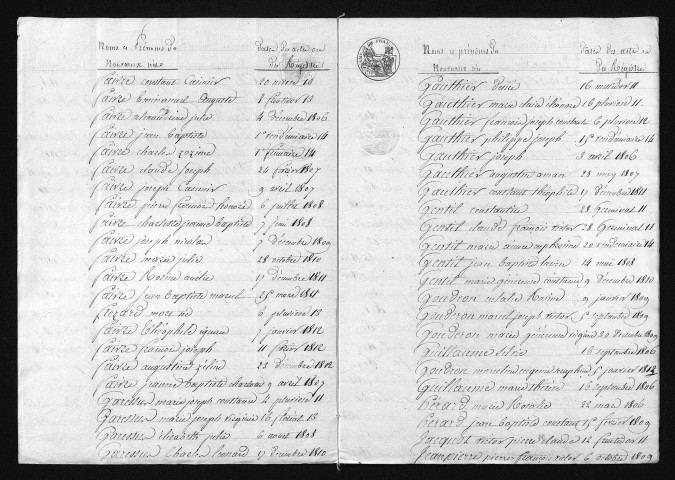 Noms et Prénoms du
Nouveaux née
Dates des actes ou
du Registre
faivre constant Casimir 20 nivose 13
faivre Emmanuel Auguste 8 fructidor 13
faivre alexandrine julie 4 décembre 1806
faivre jean baptiste 1er vendémiaire 14
faivre charle zozime 1er frimaire 14
faivre claude joseph 24 février 1807
faivre joseph Casimir 9 avril 1807
faivre pierre honoré 6 juillet 1808
faivre charlotte jeanne baptiste 7 1808
faivre joseph nicolas 7 décembre 1809
faivre marie julie 28 octobre 1810
faivre Rosine aurelie 17 décembre 1811
faivre jean baptiste marcel 25 mars 1811
6 pluviose 13
faivre théophile 7 janvier 1812
faivre joseph 11 février 1812
faivre augustine zéline 23 décembre 1812
faivre jeanne baptiste 9 avril 1807
Garessus marie joseph constance 4 pluviose 11
Garessus marie joseph virginie 16 floréal 13
Garessus élisabeth julie 6 aout 1808
Garessus Charles Léonard 17 décembre 1810
Noms et prénoms du
Nouveaux née
Dates des actes ou
du Régistre
Gauthier 16 messidor 11
Gauthier marie claude éléonore 16 pluviose 11
Gauthier jeanne joseph constante 6 pluviose 12
Gauthier philippe joseph 15 vendémiaire 14
Gauthier joseph 3 avril 1806
Gauthier augustin aman 23 may 1807
Gauthier constant théophile 17 décembre 1811
Gentil constantin 28 Germinal 11
Gentil claude françois victor 28 Germinal 11
Gentil marie aimée euphrosine 20 vendémiaire 14
Gentil jean baptiste 14 mai 1808
Gentil marie génereuse constance 9 décembre 1810
Goudron eulalie Rosine 9 janvier 1809
Goudron marcel joseph victor 5 septembre 1809
Goudron marie génereuse virginie 30 décembre 1809
Guillaume silvie 16 septembre 1806
Goudron marcelin eugene seraphin 5 janvier 1812
Guillaume marie thérèse 16 septembre 1806
hérard marie Rosalie 22 mars 1806
hérard jean baptiste constant 15 février 1809
Jacquot victor pierre claude 12 fructidor 11
Jeanpierre pierre françois victor 6 octobre 1809